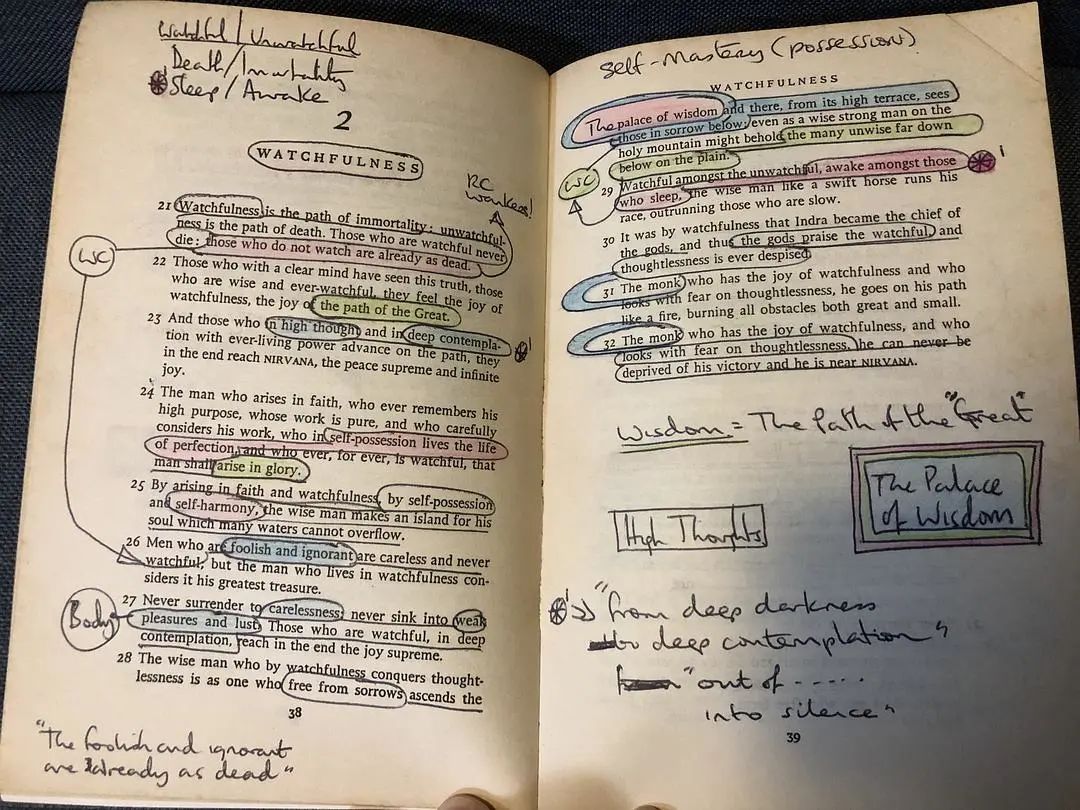 Watchful / Unwatchful
Death / Immortality
Sleep / Awake
2
WATCHFULNESS
RC
wankers!
21 Watchfulness is the path of immortality: unwatchful-
ness is the path of death. Those who are watchful never
die: those who do not watch are already as dead.
WC
22 Those with a clear mind have seen this truth, those
who are wise and ever-watchful, they feel the joy of
watchfulness, the joy of the path of the Great.
23 And those who in high thought and in deep contempla-
tion with ever-living power advance on the path, they
in the end reach NIRVANA, the peace supreme and infinite
joy.
24 The man who arises in faith, who ever remembers his
high purpose, whose work is pure, and who carefully
considers his work, who in self-possession lives the life
of perfection, and who ever, for ever, is watchful, that
man shall arise in glory.
25 By arising in faith and watchfulness, by self-possession
and self-harmony, the wise man makes an island for his
soul which many waters cannot overflow.
26 Men who are foolish and ignorant are careless and never
watchful; but the man who lives in watchfulness con-
siders it his greatest treasure.
Body
27 Never surrender to carelessness; never sink into weak
pleasures and lust. Those who are watchful, in deep
contemplation, reach in the end the joy supreme.
28 The wise man who by watchfulness conquers thought-
lessness is as one who free from sorrows ascends the
38
"The foolish and ignorant
are already as dead"
Self-Mastery (possession).
WATCHFULNESS
The palace of wisdom and there, from its high terrace, sees
those in sorrow below; even as a wise strong man on the
holy mountain might behold the many unwise far down
below on the plain.
WC
29 Watchful amongst the unwatchful, awake amongst those
who sleep, the wise man like a swift horse runs his
race, outrunning those who are slow.
30 It was by watchfulness that Indra became the chief of
the gods, and thus the gods praise the watchful, and
thoughtlessness is ever despised.
31 The monk who has the joy of watchfulness and who
looks with fear on thoughtlessness, he goes on his path
like a fire, burning all obstacles both great and small.
32 The monk who has the joy of watchfulness, and who
looks with fear on thoughtlessness, he can never be
deprived of his victory and he is near NIRVANA.
Wisdom = The Path of the "Great"
The Palace
of Wisdom
High Thoughts
"from deep darkness
to deep contemplation"
"out of .....
into silence"
39